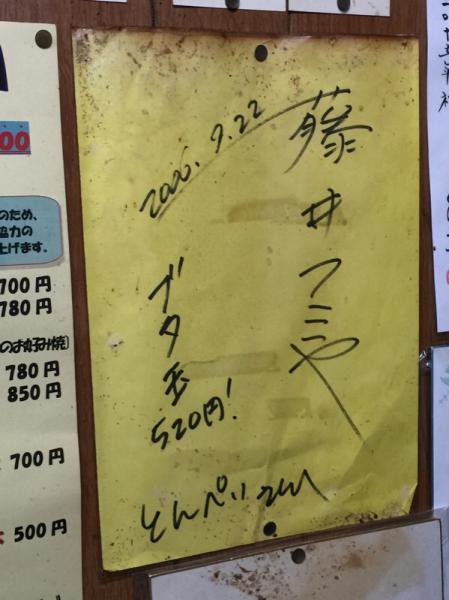 藤井フミや
2000.9.22
ブタ玉
520円!
とんぺいさんへ
00
のため、
協力の
上げます。
700円
780円
のお好み焼〕
780円
850円
700円
500円